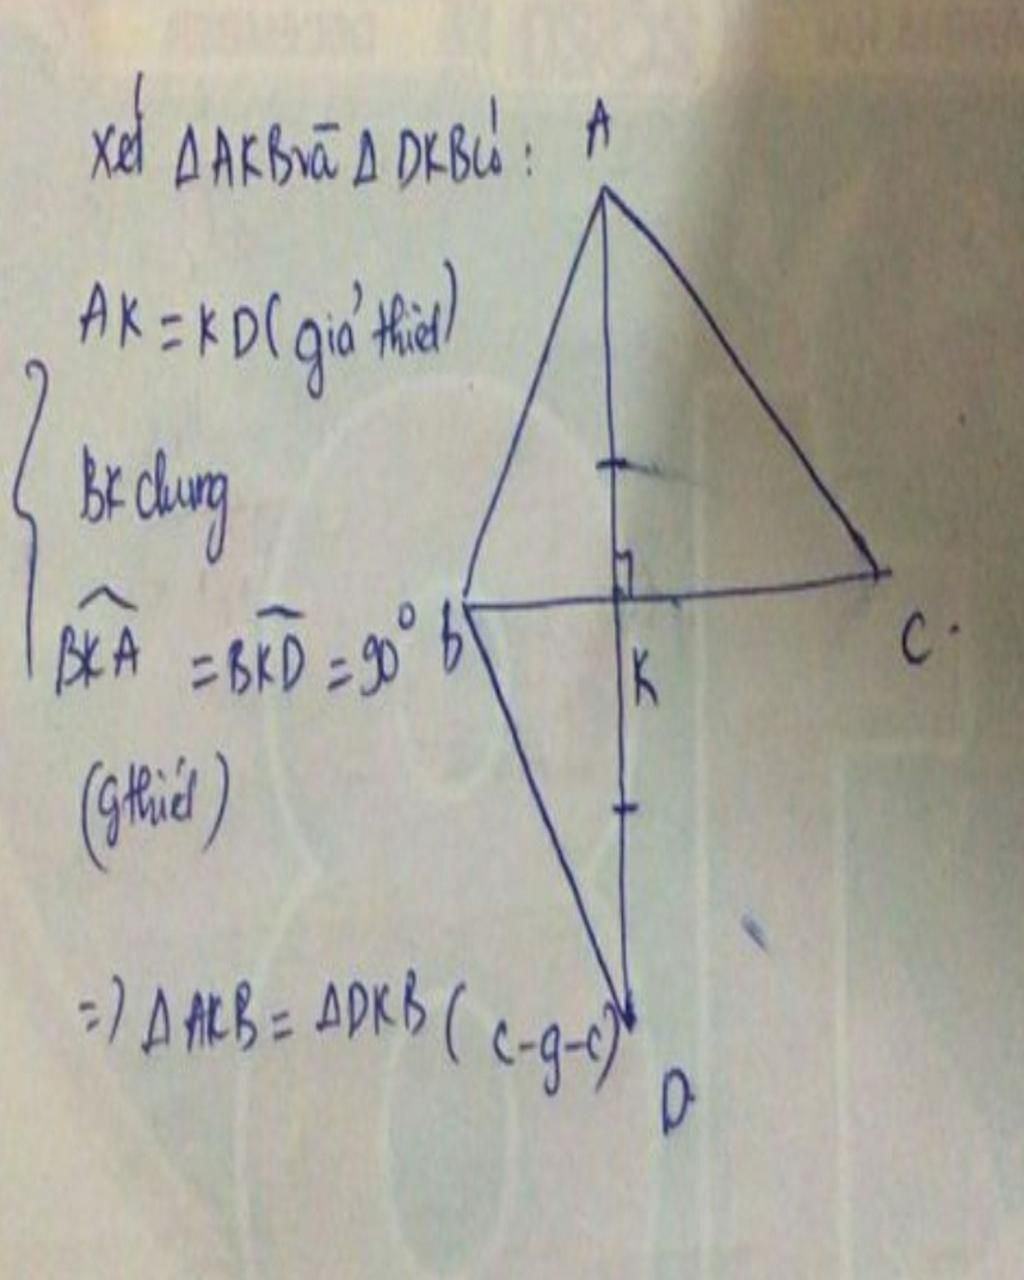 Xét Δ AKB và Δ DKB có :
AK = KD ( giả thiết )
BK chung
BKA = BKD = 90°
( gthiết )
=> Δ AKB = Δ DKB ( c-g-c )
A
B
K
C
D